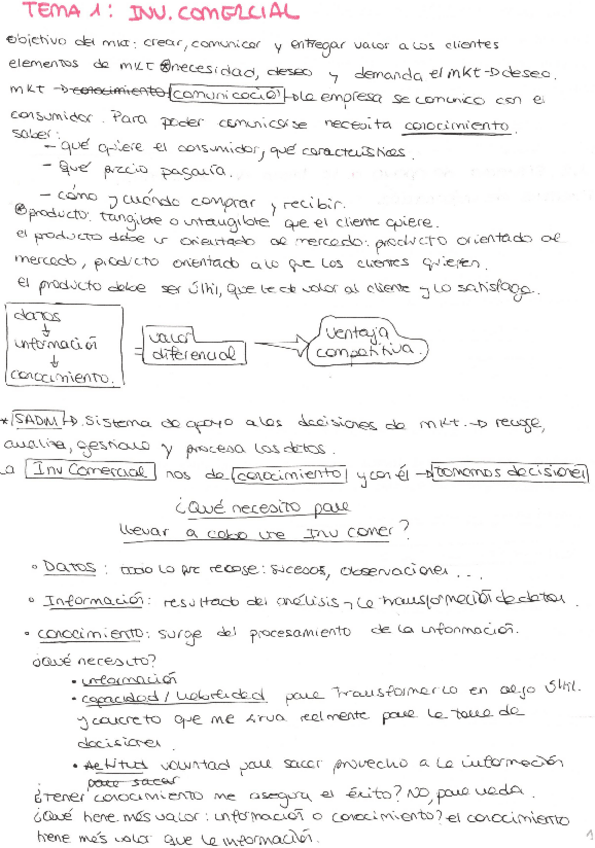 TEMA 1: INV. COMERCIAL
Objetivo del mkt: crear, comunicar y entregar valor a los clientes
elementos de mkt necesidad, deseo y demanda el mkt → deseo.
mkt → conocimiento comunicación → la empresa se comunica con el
consumidor. Para poder comunicarse necesita conocimiento.
saber:
- qué quiere el consumidor, qué características.
- Qué precio pagaría.
- cómo y cuándo comprar y recibir.
producto: tangible o intangible que el cliente quiere.
el producto debe ir orientado al mercado: producto orientado al
mercado, producto orientado a lo que los clientes quieren.
el producto debe ser útil, que le de valor al cliente y lo satisfaga.
datos
↓
información
↓
conocimiento.
= valor diferencial → ventaja competitiva.
* SADM → Sistema de apoyo a las decisiones de mkt. → recoge,
analiza, gestiona y procesa los datos.
La Inv Comercial nos da conocimiento y con él → tomamos decisiones
¿Qué necesito para
llevar a cabo una Inv Comer?
• Datos: todo lo que recoge: sucesos, observaciones...
• Información: resultado del análisis y la transformación de datos.
• conocimiento: surge del procesamiento de la información.
¿Qué necesito?
• información
• capacidad / habilidad para transformarlo en algo útil.
y concreto que me sirva realmente para la toma de
decisiones.
• Actitud voluntad para sacar provecho a la información
para sacar
¿Tener conocimiento me asegura el éxito? NO, para nada.
¿Qué tiene más valor: información o conocimiento? el conocimiento
tiene más valor que la información.
1